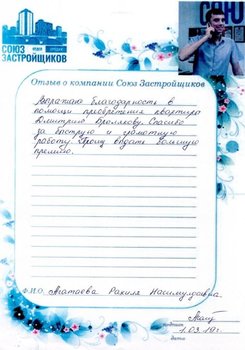 СОЮЗ
ЗАСТРОЙЩИКОВ
СОЮЗ
Отзыв о компании Союз Застройщиков
Выражаю благодарность в
помощи приобретения квартиры
Дмитрию Бролякову. Спасибо
за быструю и грамотную
работу. Прошу выдать большую
премию.
Ф.И.О. Агатаева Рахиля Насимулдаевна.
подпись
1.03.19г.
дата